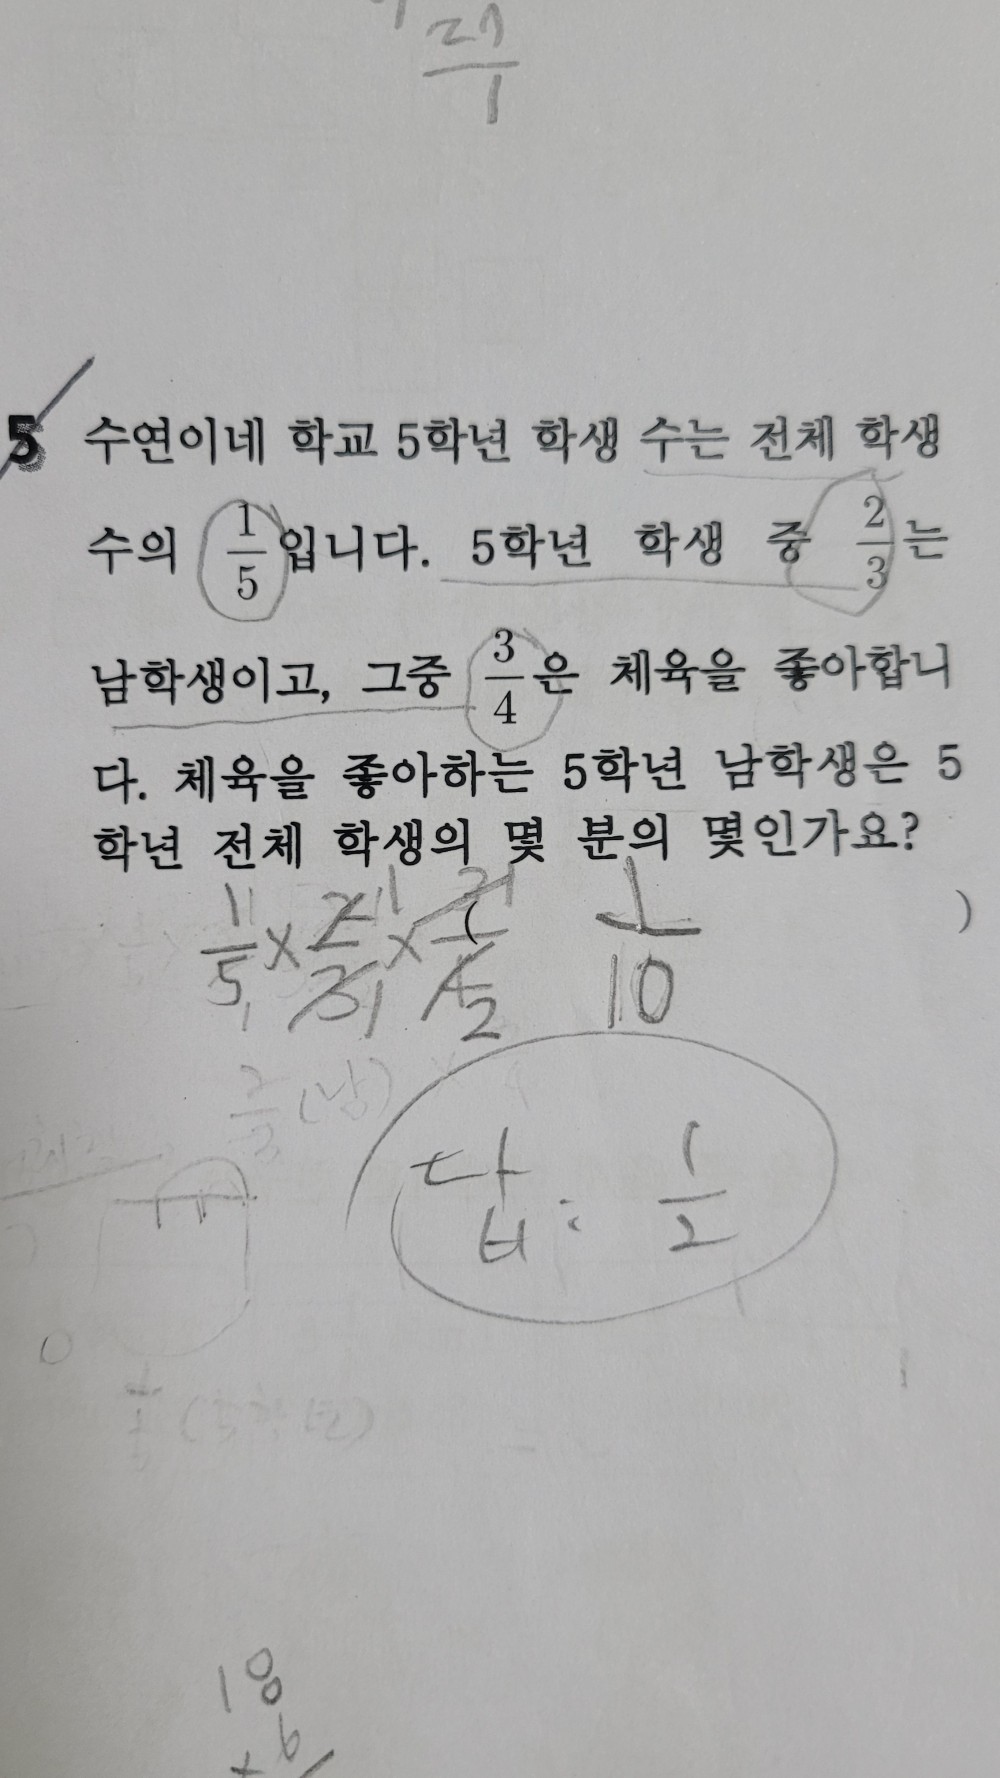 27
1
5 수연이네 학교 5학년 학생 수는 전체 학생
수의 1/5입니다. 5학년 학생 중 2/3는
남학생이고, 그중 3/4은 체육을 좋아합니
다. 체육을 좋아하는 5학년 남학생은 5
학년 전체 학생의 몇 분의 몇인가요?
( )
1/5 × 2/3 × 3/4 1/10
1 1 1 1 1 2
2/3 (남)
답 : 1/2
18
9